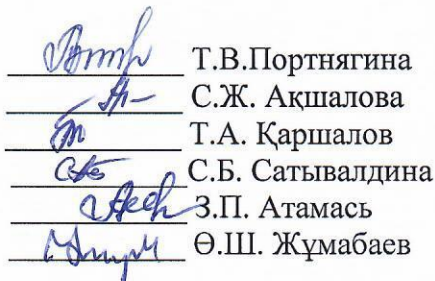 Т.В.Портнягина
С.Ж. Ақшалова
Т.А. Қаршалов
С.Б. Сатывалдина
З.П. Атамась
Ө.Ш. Жұмабаев